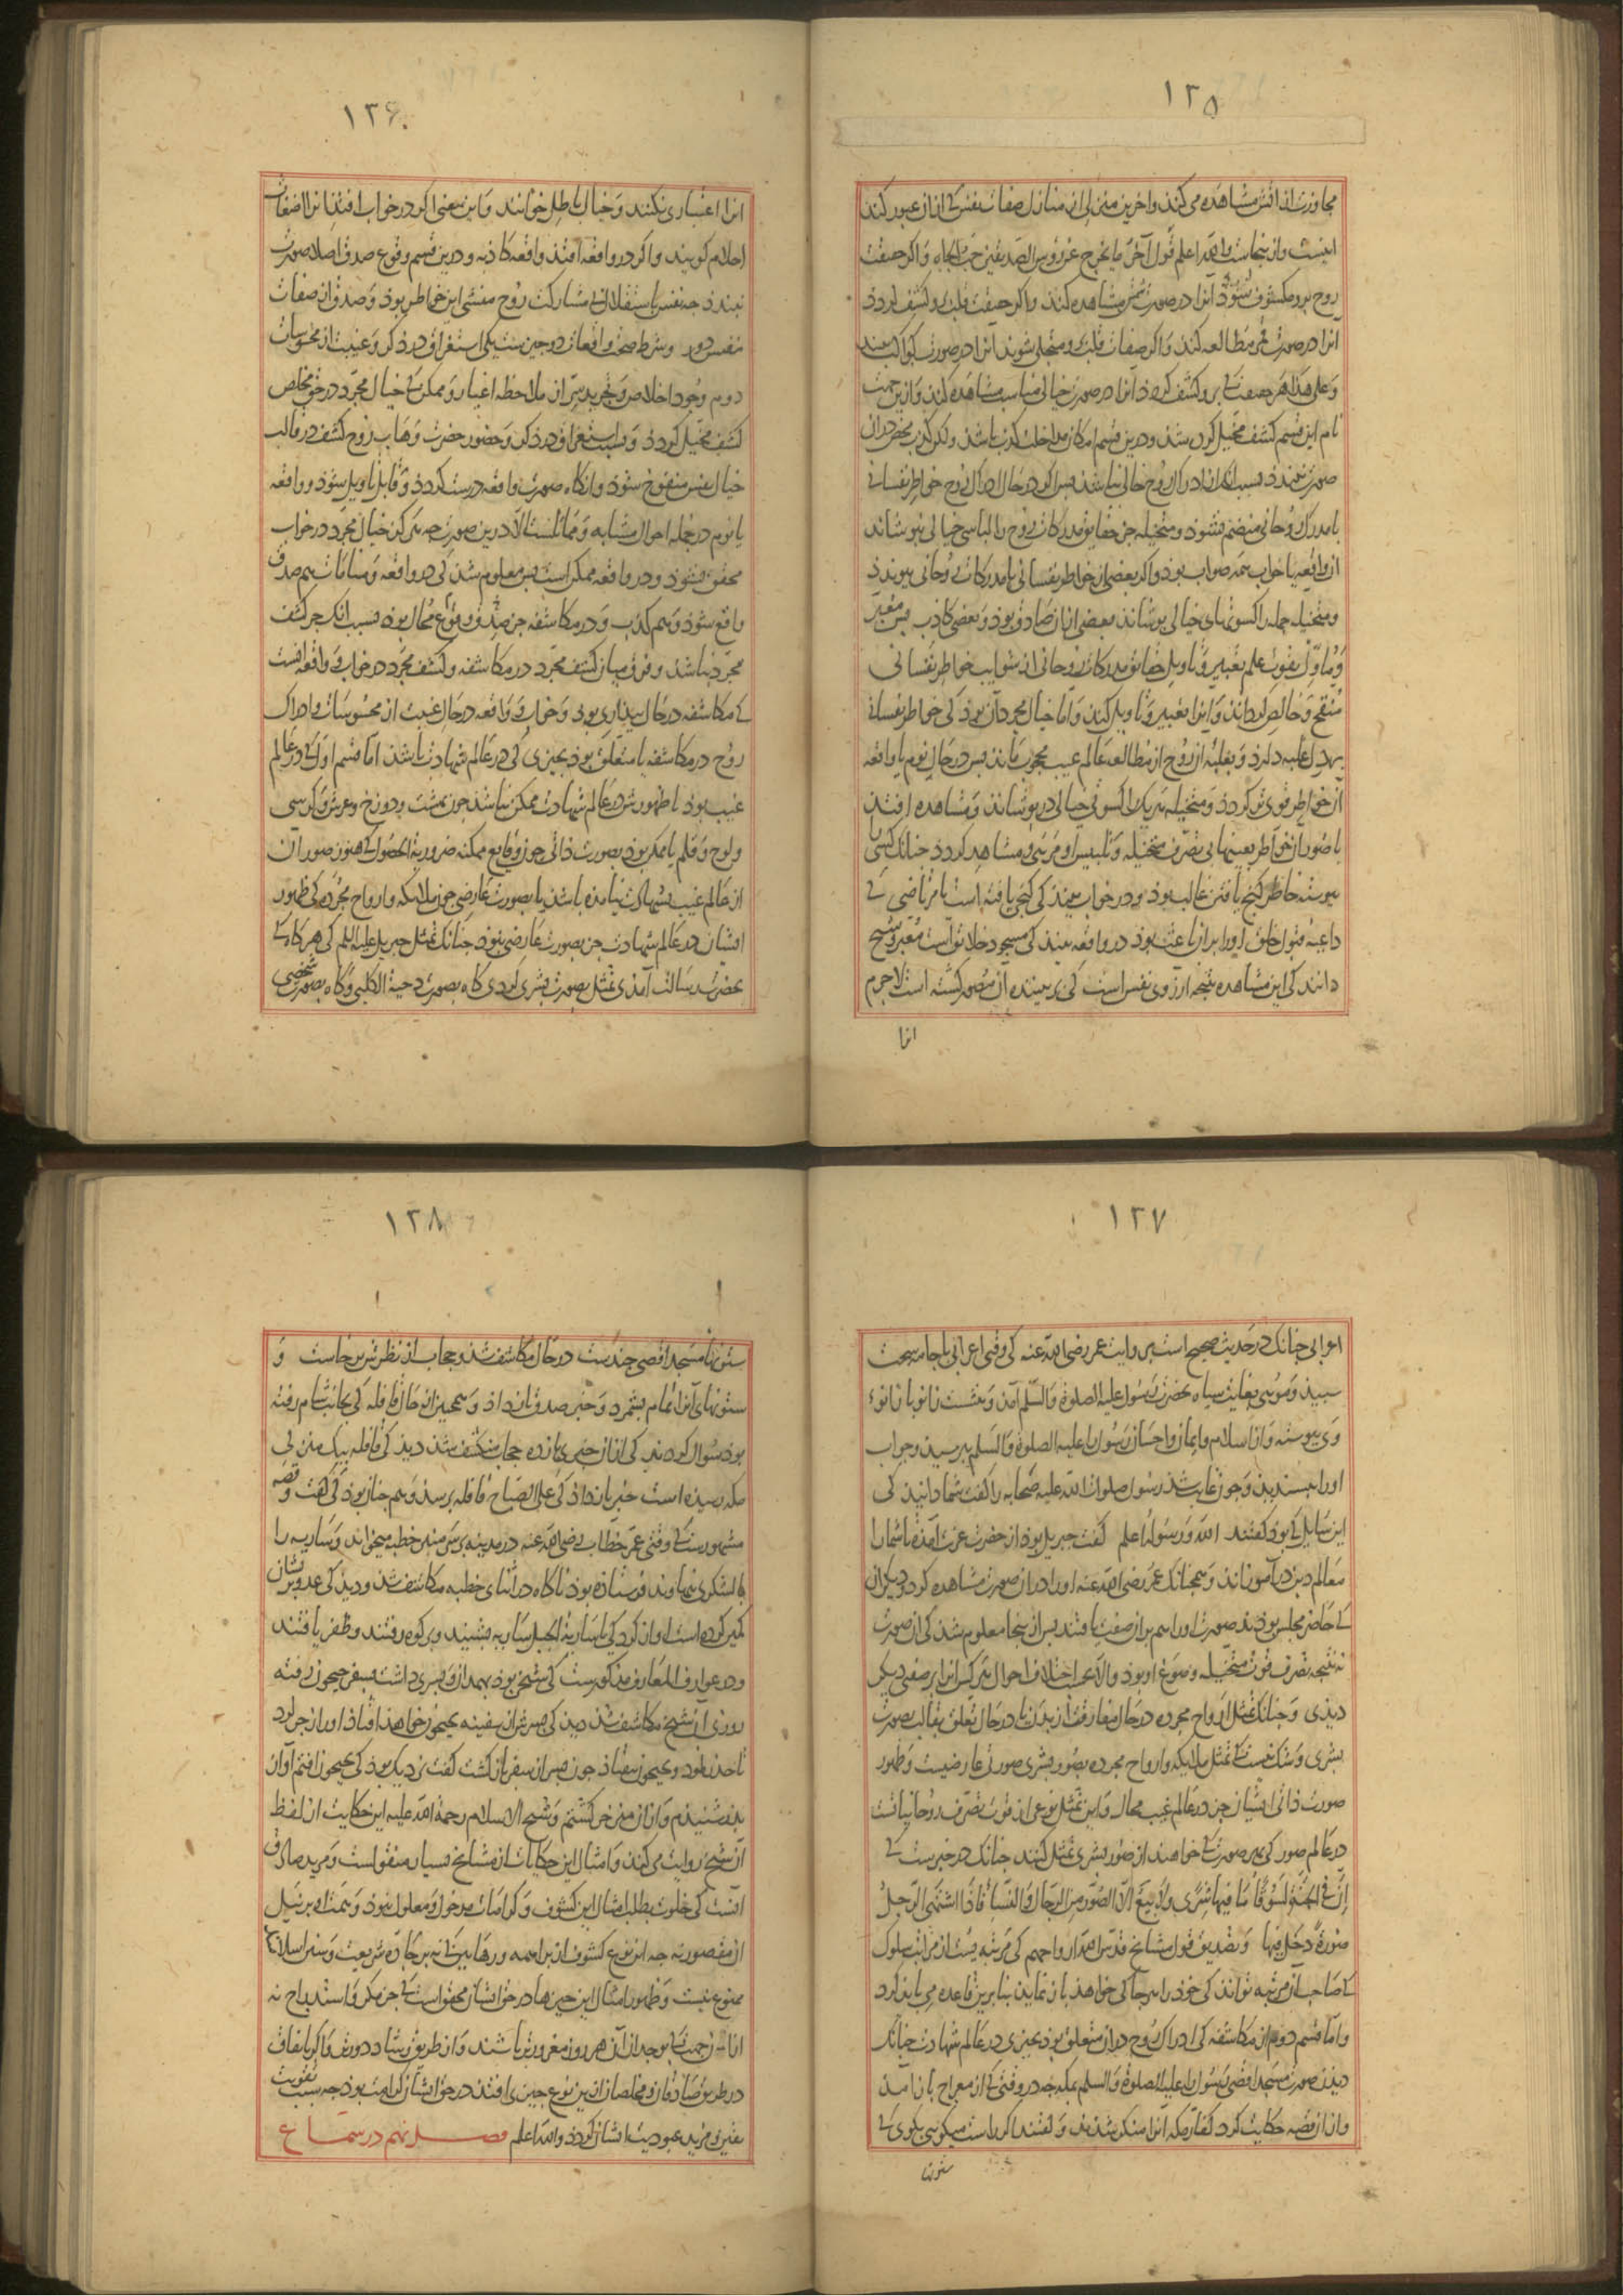 ۱۲۵
مجاوزت از آتش مشاهده می کند و اخرین منزلی از منازل صفات نفس کی از ان عبور کند
اینست و از ینجاست والله اعلم قول آخر ما یخرج عن رؤس الصدیقین حب الجاه و اگر حقیقت
روح برو مکشوف شود آنرا در صورت شمس مشاهده کند و اگر حقیقت قلب برو کشف گردد
آنرا در صورت قمر مطالعه کند و اگر صفات قلب برو متجلی شوند انرا در صورت کواکب بیند
و علی هذا هر صفت کی برو کشف گردد آنرا در صورت خیالی مناسب مشاهده کند و از ین جهت
نام این قسم کشف مخیل کرده شد و درین قسم امکان مداخلت کذب باشد ولکن کذب محض دران
صورت نبندد بسبب انک از ادراک روح خالی نباشد بس اگر در حال ادراک روح خواطر نفسانی
با مدرک روحانی منضم نشود و متخیله جز حقایق مدرکات روح را لباس خیالی نپوشاند
ان واقعه یا خواب همه صواب بود و اگر بعضی از خواطر نفسانی با مدرکات روحانی پیوندد
و متخیله جمله را کسوتهای خیالی پوشاند بعضی از ان صادق بود و بعضی کاذب بس معبر
و مأول بقوت علم تعبیر و تاویل حقایق مدرکات روحانی از شوایب خواطر نفسانی
منقح و خالص گرداند و انرا تعبیر و تاویل کند و اما خیال مجرد آن بود کی خواطر نفسانی
بر دل غلبه دارد و بغلبه ان روح از مطالعه عالم غیب محجوب ماند بس در حال نوم یا واقعه
آن خواطر قوی تر گردد و متخیله هر یک را کسوتی خیالی در پوشاند و مشاهده افتد
یا صور ان خواطر بعینها بی تصرف متخیله و تلبیس او مرئی و مشاهد گردد چنانک کسی را
پیوسته خاطر گنج یافتن غالب بود و در خواب بیند کی گنجی یافته است یا مرتاضی کی
داعیه قبول خلق او را بران باعث بود در واقعه بیند کی مسجود خلایق است معبر و شیخ
دانند کی این مشاهده نتیجه ارزوی نفس است کی بر بیننده ان مصور گشته است لاجرم
انرا
۱۲۶
انرا اعتباری نکنند و خیال باطل خوانند و این معنی اگر در خواب افتد انرا اضغاث
احلام گویند و اگر در واقعه افتد واقعه کاذبه و درین قسم وقوع صدق اصلا صورت
نبندد چه نفس باستقلال بی مشارکت روح منشی این خواطر بود و صدق از صفات
نفس دور و شرط صحت واقعات دو چیزست یکی استغراق در ذکر و غیبت از محسوسات
دوم وجود اخلاص و تجرید سر از ملاحظه اغیار و ممکن کی خیال مجرد در حق مخلص
کشف مخیل گردد و بسبب استغراق در ذکر و حضور حضرت وهاب روح کشف در قالب
خیال نفس منفوخ شود و انگاه صورت واقعه درست گردد و قابل تاویل شود و واقعه
با نوم در جمله احوال مشابه و مماثلست الا درین صورت چه هرگز خیال مجرد در خواب
محقق نشود و در واقعه ممکن است بس معلوم شد کی در واقعه و منامات هم صدق
واقع شود و هم کذب و در مکاشفه جز صدق وقوع محال بود بسبب انک جز کشف
مجرد نباشد و فرق میان کشف مجرد در مکاشفه و کشف مجرد در خواب و واقعه انست
کی مکاشفه در حال بیداری بود و خواب و واقعه در حال غیبت از محسوسات و ادراک
روح در مکاشفه یا متعلق بود بچیزی کی در عالم شهادت باشد اما قسم اول کی در عالم
غیب بود یا ظهورش در عالم شهادت ممکن نباشد چون بهشت و دوزخ و عرش و کرسی
و لوح و قلم یا ممکن بود بصورت ذاتی چون وقایع ممکنه ضروریة الحصول کی هنوز صور ان
از عالم غیب بشهادت نیامده باشد یا بصورت عارضی چون ملائکه و ارواح مجرده کی ظهور
ایشان در عالم شهادت جز بصورت عارضی نبود چنانک تمثل جبریل علیه السلم کی هرگاه کی
بحضرت رسالت آمدی تمثل بصورت بشری کردی گاه بصورت دحیة الکلبی و گاه بصورت شخصی
۱۲۷
اعرابی چنانک در حدیث صحیح است بروایت عمر رضی الله عنه کی وقتی اعرابی با جامه سخت
سبید و موئی بغایت سیاه بحضرت رسول علیه الصلوة والسلم آمد و بنشست زانو با زانوء
وی پیوسته و از اسلام و ایمان و احسان رسول را علیه الصلوة والسلم بپرسید و جواب
او را بپسندید و چون غایب شد رسول صلوات الله علیه صحابه را گفت شما دانید کی
این سایل کی بود گفتند الله و رسوله اعلم گفت جبریل بود از حضرت عزت آمده تا شما را
معالم دین در آموزاند و همچنانک عمر رضی الله عنه او را در ان صورت مشاهده کرد دیگران
کی حاضر مجلس بودند صورت او را هم بران صفت یافتند بس از ینجا معلوم شد کی ان صورت
نه نتیجه تصرف قوت متخیله و صوغ او بود والا بحسب اختلاف احوال هر کس انرا بر صفتی دیگر
دیدی و چنانک تمثل ارواح مجرده در حال مفارقت از بدن یا در حال تعلق بقالب بصورت
بشری و شک نیست کی تمثل ملایکه و ارواح مجرده بصور بشری صورتی عارضیست و ظهور
صورت ذاتی ایشان جز در عالم غیب محال و این تمثل نوعی از قوت تصرف روحانیاتست
در عالم صور کی بهر صورت کی خواهند از صور بشری تمثل کنند چنانک در خبرست کی
ان فی الجنة لسوقا ما فیها شری ولا بیع الا الصور من الرجال والنساء فاذا اشتهی الرجل
صورة دخل فیها و تصدیق قول مشایخ قدس الله ارواحهم کی مرتبه یست از مراتب سلوک
کی صاحب آن مرتبه تواند کی خود را هر جا کی خواهد بازنماید بنابرین قاعده می باید کرد
و اما قسم دوم از مکاشفه کی ادراک روح دران متعلق بود بچیزی در عالم شهادت چنانک
دیدن صورت مسجد اقصی رسول را علیه الصلوة والسلم بمکه چه در وقتی کی از معراج باز آمد
و از ان قصه حکایت کرد کفار مکه انرا منکر شدند و گفتند اگر راست میگوئی بگوی کی
ستونها
۱۲۸
ستونهاء مسجد اقصی چندست در حال مکاشف شد و حجاب از نظرش برخاست و
ستونهای آنرا تمام بشمرد و خبر صدق باز داد و همچنین از حال قافله کی بجانب شام رفته
بود سوال کردند کی از ان خبری بازده حجاب منکشف شد دید کی قافله بیک منزلی
مکه رسیده است خبر باز داد کی علی الصباح قافله برسد و هم چنان بود کی گفت و قصه
مشهورست کی وقتی عمر خطاب رضی الله عنه در مدینه بر سر منبر خطبه میخواند و ساریه را
با لشکری بنهاوند فرستاده بود ناگاه در اثنای خطبه مکاشف شد و دید کی عدو بریشان
کمین کرده است اواز کرد کی یا ساریة الجبل ساریه بشنید و بر کوه رفتند و ظفر یافتند
و در عوارف المعارف مذکورست کی شیخی بود بهمدان و پسری داشت بسفر جیحون رفته
روزی آن شیخ مکاشف شد دید کی پسرش از سفینه بجیحون خواهد افتاد او را زجر کرد
تا حذر نمود و بجیحون نیفتاد چون پسر از سفر باز گشت گفت نزدیک بود کی بجیحون افتم آواز
پدر شنیدم و از ان منزجر گشتم و شیخ الاسلام رحمة الله علیه این حکایت از لفظ
آن شیخ روایت می کند و امثال این حکایات از مشایخ بسیار منقولست و مرید صادق
آنست کی خلوت بطلب امثال این کشوف و کرامات مدخول و معلول نبود و همت او بر نیل
ان مقصور نه چه این نوع کشوف از براهمه و رهابین کی نه بر جاده شریعت و سنن اسلام اند
ممنوع نیست و ظهور امثال این چیزها در حق ایشان محقق است کی جز مکر و استدراج نه
تا از ین جهت بوجدان آن هر روز مغرورتر باشند و از طریق رشاد دورتر و اگر باتفاق
در طریق صادقان و مخلصان ازین نوع چیزی افتد در حق ایشان کرامت بود چه سبب تقویت
یقین و مزید عبودیت ایشان گردد والله اعلم فصل نهم در سماع